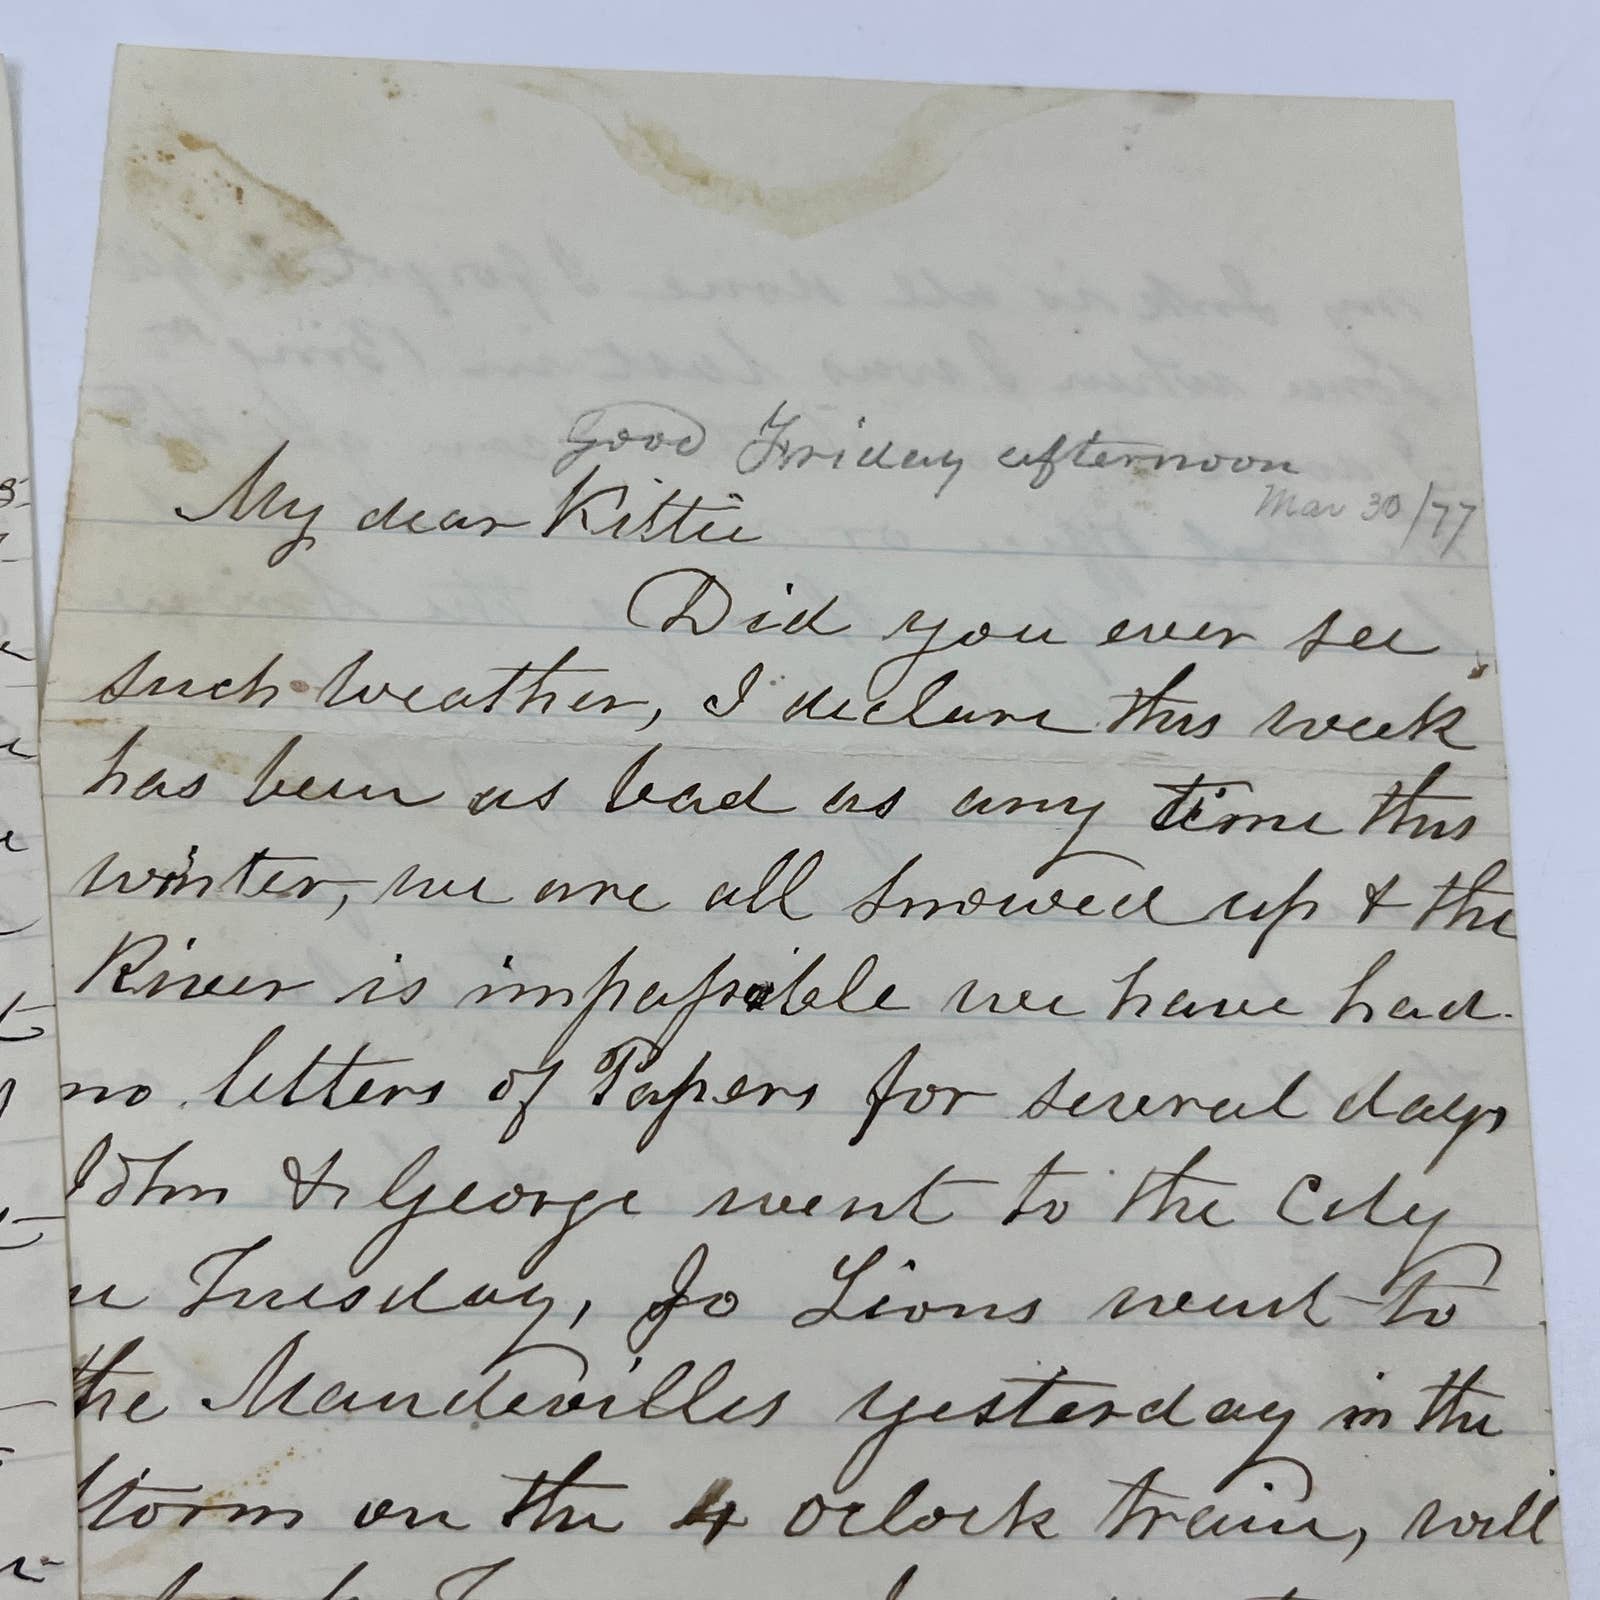 Good Friday afternoon
Mar 30/77
My dear Kittie
Did you ever see
such weather, I declare this week
has been as bad as any time this
winter, we are all snowed up & the
River is impassible we have had
no letters of Papers for several days
John & George went to the City
Tuesday, Jo Lions went to
the Mandevilles yesterday in the
storm on the 4 oclock train, will